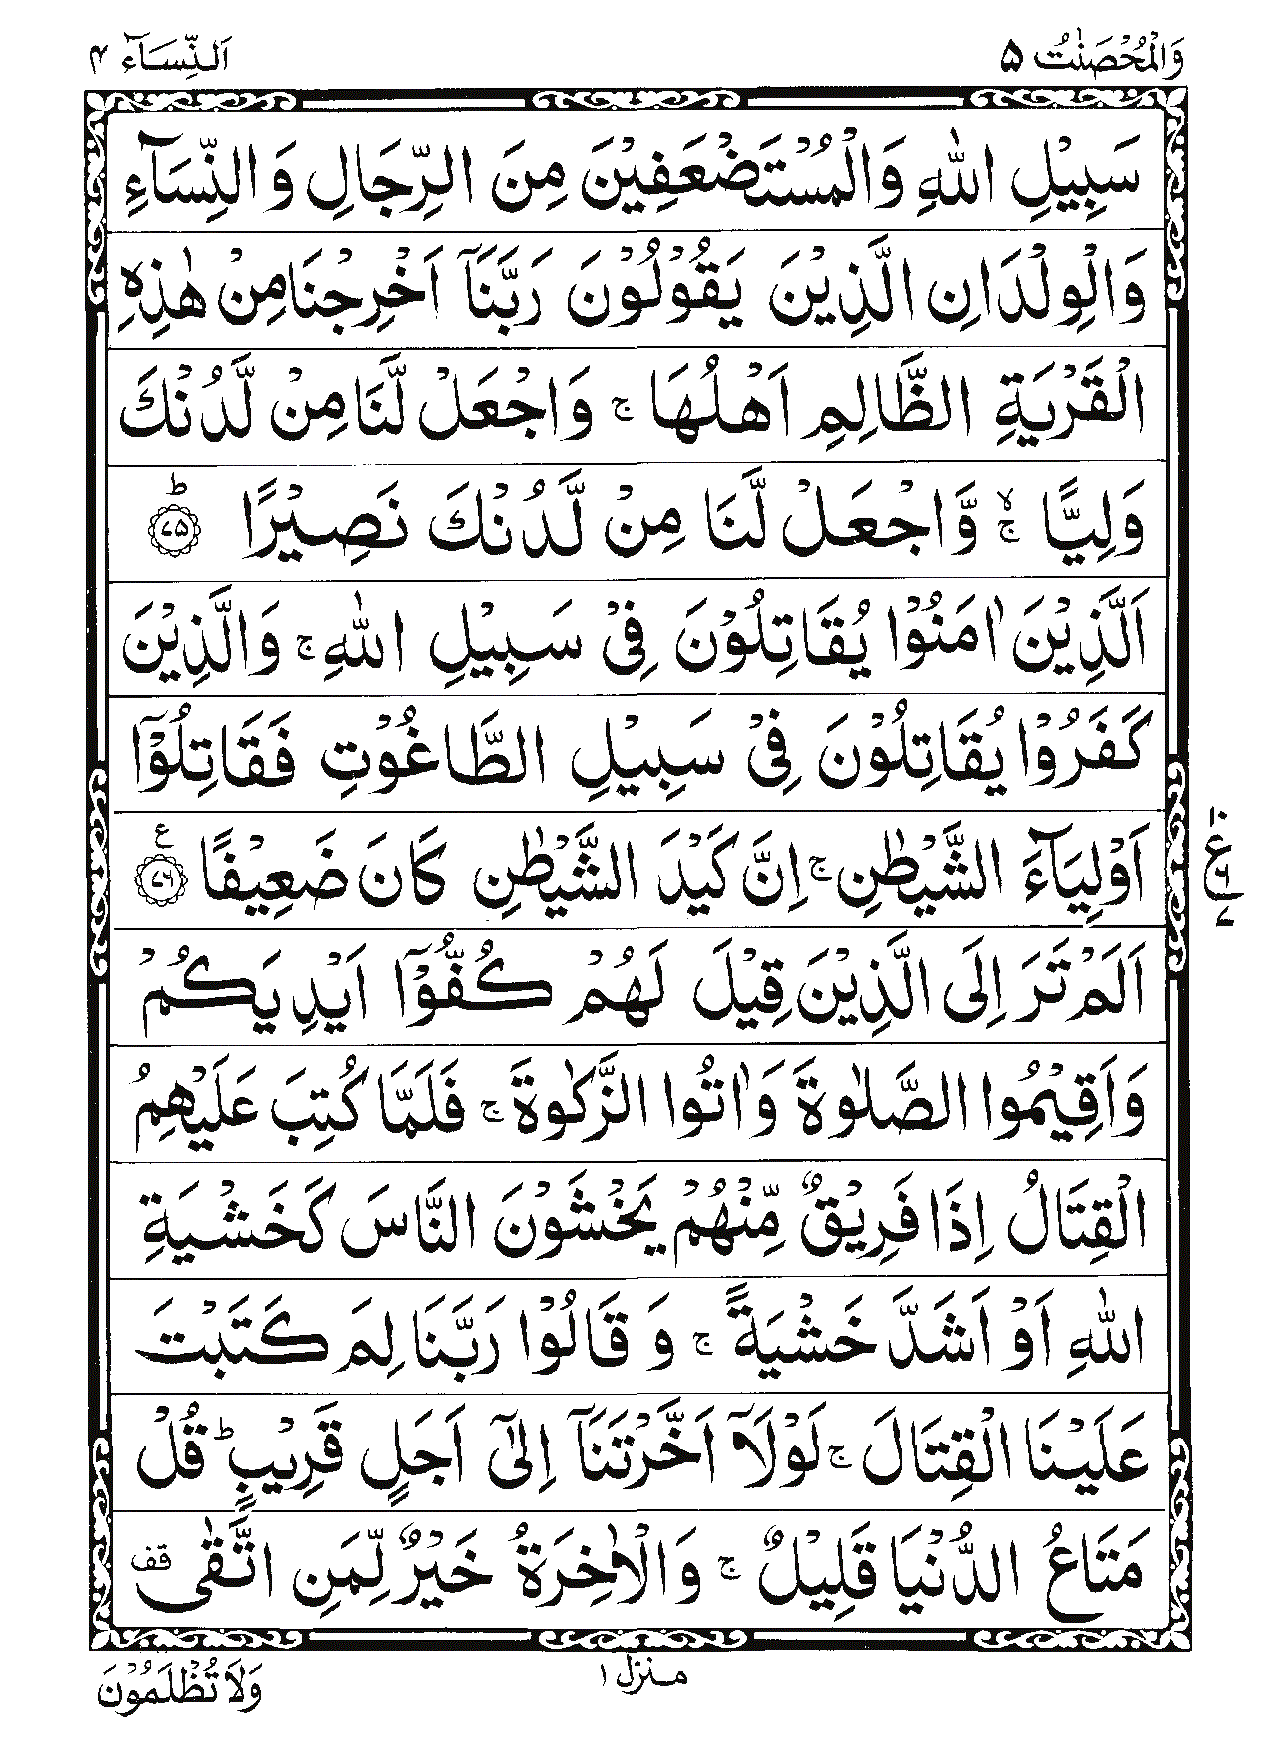 وَالْمُحْصَنٰتُ ۵
اَلنِّسَآء ۴
سَبِيْلِ اللّٰهِ وَالْمُسْتَضْعَفِيْنَ مِنَ الرِّجَالِ وَ النِّسَآءِ
وَالْوِلْدَانِ الَّذِيْنَ يَقُوْلُوْنَ رَبَّنَآ اَخْرِجْنَا مِنْ هٰذِهِ
الْقَرْيَةِ الظَّالِمِ اَهْلُهَا ۚ وَاجْعَلْ لَّنَا مِنْ لَّدُنْكَ
وَلِيًّا ۙۚ وَّاجْعَلْ لَّنَا مِنْ لَّدُنْكَ نَصِيْرًا ؕ ﴿۷۵﴾
اَلَّذِيْنَ اٰمَنُوْا يُقَاتِلُوْنَ فِيْ سَبِيْلِ اللّٰهِ ۚ وَالَّذِيْنَ
كَفَرُوْا يُقَاتِلُوْنَ فِيْ سَبِيْلِ الطَّاغُوْتِ فَقَاتِلُوْٓا
اَوْلِيَآءَ الشَّيْطٰنِ ۚ اِنَّ كَيْدَ الشَّيْطٰنِ كَانَ ضَعِيْفًا ع ﴿۷۶﴾
۱۰ ع ۶ ۷
اَلَمْ تَرَ اِلَى الَّذِيْنَ قِيْلَ لَهُمْ كُفُّوْٓا اَيْدِيَكُمْ
وَاَقِيْمُوا الصَّلٰوةَ وَاٰتُوا الزَّكٰوةَ ۚ فَلَمَّا كُتِبَ عَلَيْهِمُ
الْقِتَالُ اِذَا فَرِيْقٌ مِّنْهُمْ يَخْشَوْنَ النَّاسَ كَخَشْيَةِ
اللّٰهِ اَوْ اَشَدَّ خَشْيَةً ۚ وَ قَالُوْا رَبَّنَا لِمَ كَتَبْتَ
عَلَيْنَا الْقِتَالَ ۚ لَوْلَآ اَخَّرْتَنَآ اِلٰٓى اَجَلٍ قَرِيْبٍ ؕ قُلْ
مَتَاعُ الدُّنْيَا قَلِيْلٌ ۚ وَالْاٰخِرَةُ خَيْرٌ لِّمَنِ اتَّقٰى قف
منزل ۱
وَلَا تُظْلَمُوْنَ